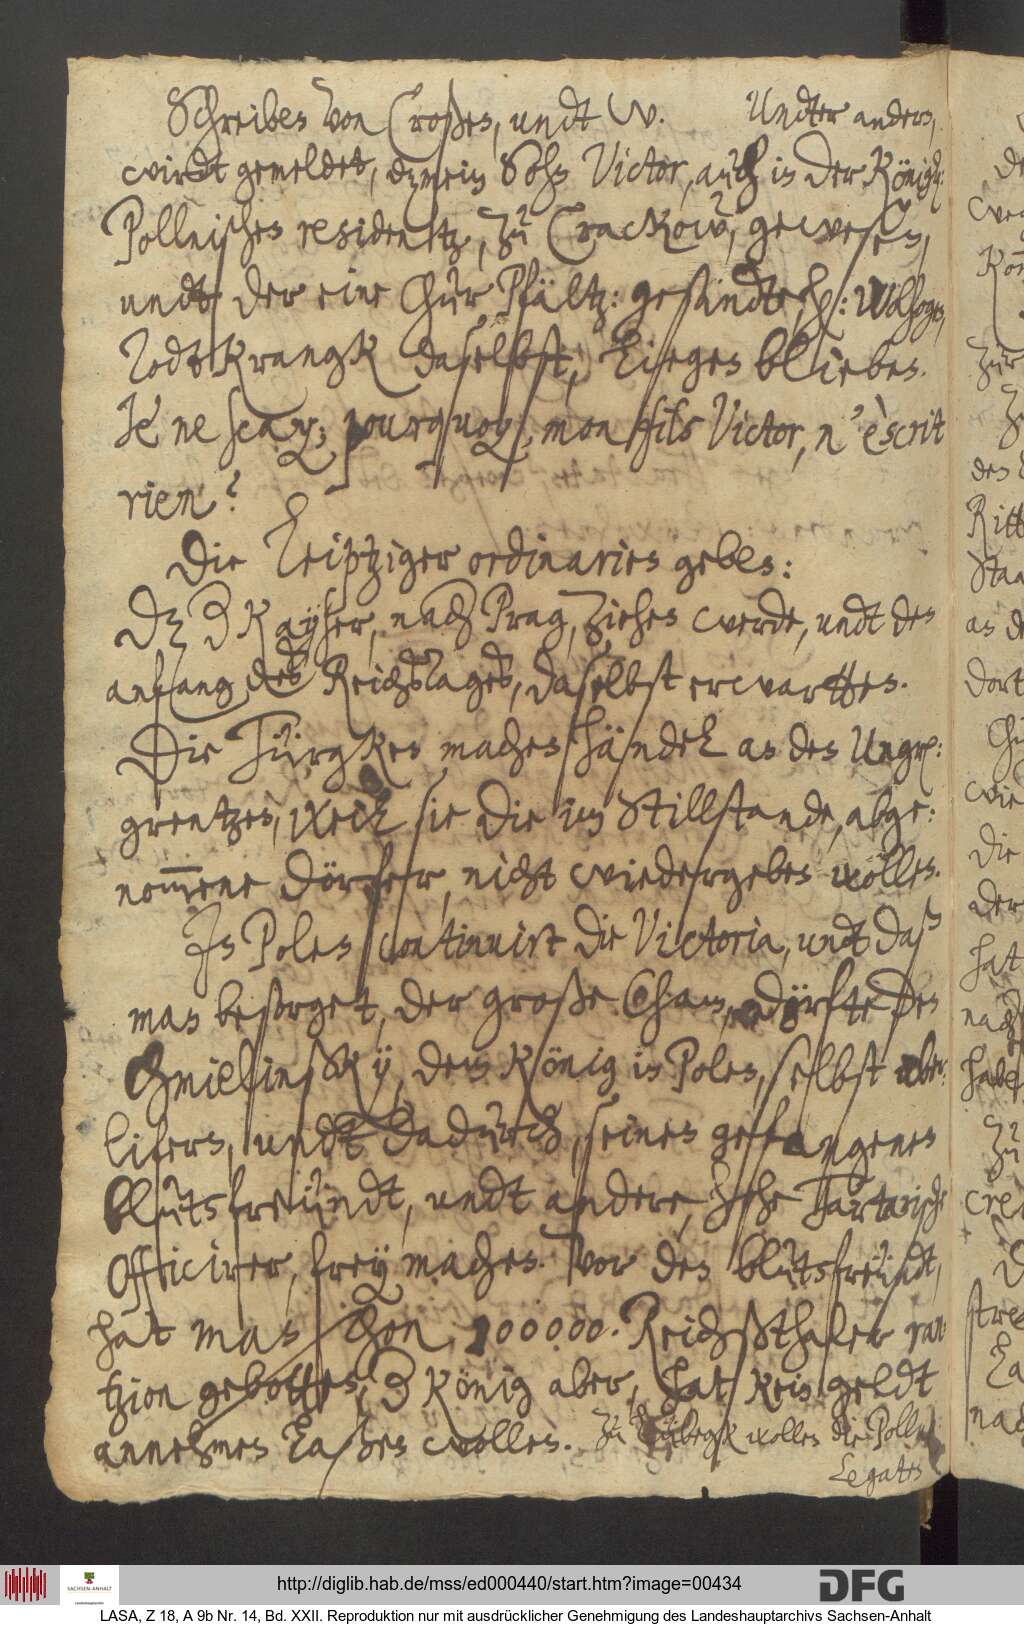 Schreiben von Croßen, undt W. Undter andern,
wirdt gemeldet, dz mein Sohn Victor, auch in der Königl:
Pollnischen residentz, zu Crackow, gewesen,
undt der eine ChurPfältz: gesandte, H:
Todtkrangk daselbst, liegen blieben.
Je ne scay, pourquoy, mon fils Victor, n'èscrit
rien?
Die Leiptziger ordinarien geben:
Dz der Kayser, nach Prag, ziehen werde, undt den
anfang des ReichsTages, daselbst erwartten.
Die Türgken machen händel an den Ungr:
grentzen, weil sie die im Stillstande, abge:
nom̅ene Dörfer, nicht wiedergeben wollen.
In Polen continuirt die Victoria, undt daß
man besorget, der große Cham, dörfte den
Chmielinsky, dem König in Polen, selbst uber:
lifern, undt dadurch, seinen gefangenen
blutsfreündt, undt andere, hohe Tartarische
Officirer, frey machen. Vor den blutsfreündt,
hat man schon, 200000. Reichsthaler ran
tzion gebotten, der König aber, hat kein geldt
annehmen laßen wollen. Zu Lübegk wollen die Polln:
Legaten
http://diglib.hab.de/mss/ed000440/start.htm?image=00434
SACHSEN-ANHALT
DFG
LASA, Z 18, A 9b Nr. 14, Bd. XXII. Reproduktion nur mit ausdrücklicher Genehmigung des Landeshauptarchivs Sachsen-Anhalt